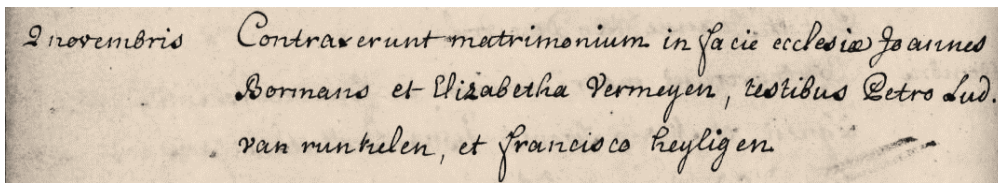 2 novembris Contraxerunt matrimonium in facie ecclesiæ Joannes
Bormans et Elizabetha Vermeyen, testibus Petro Lud.
van runkelen, et francisco heyligen